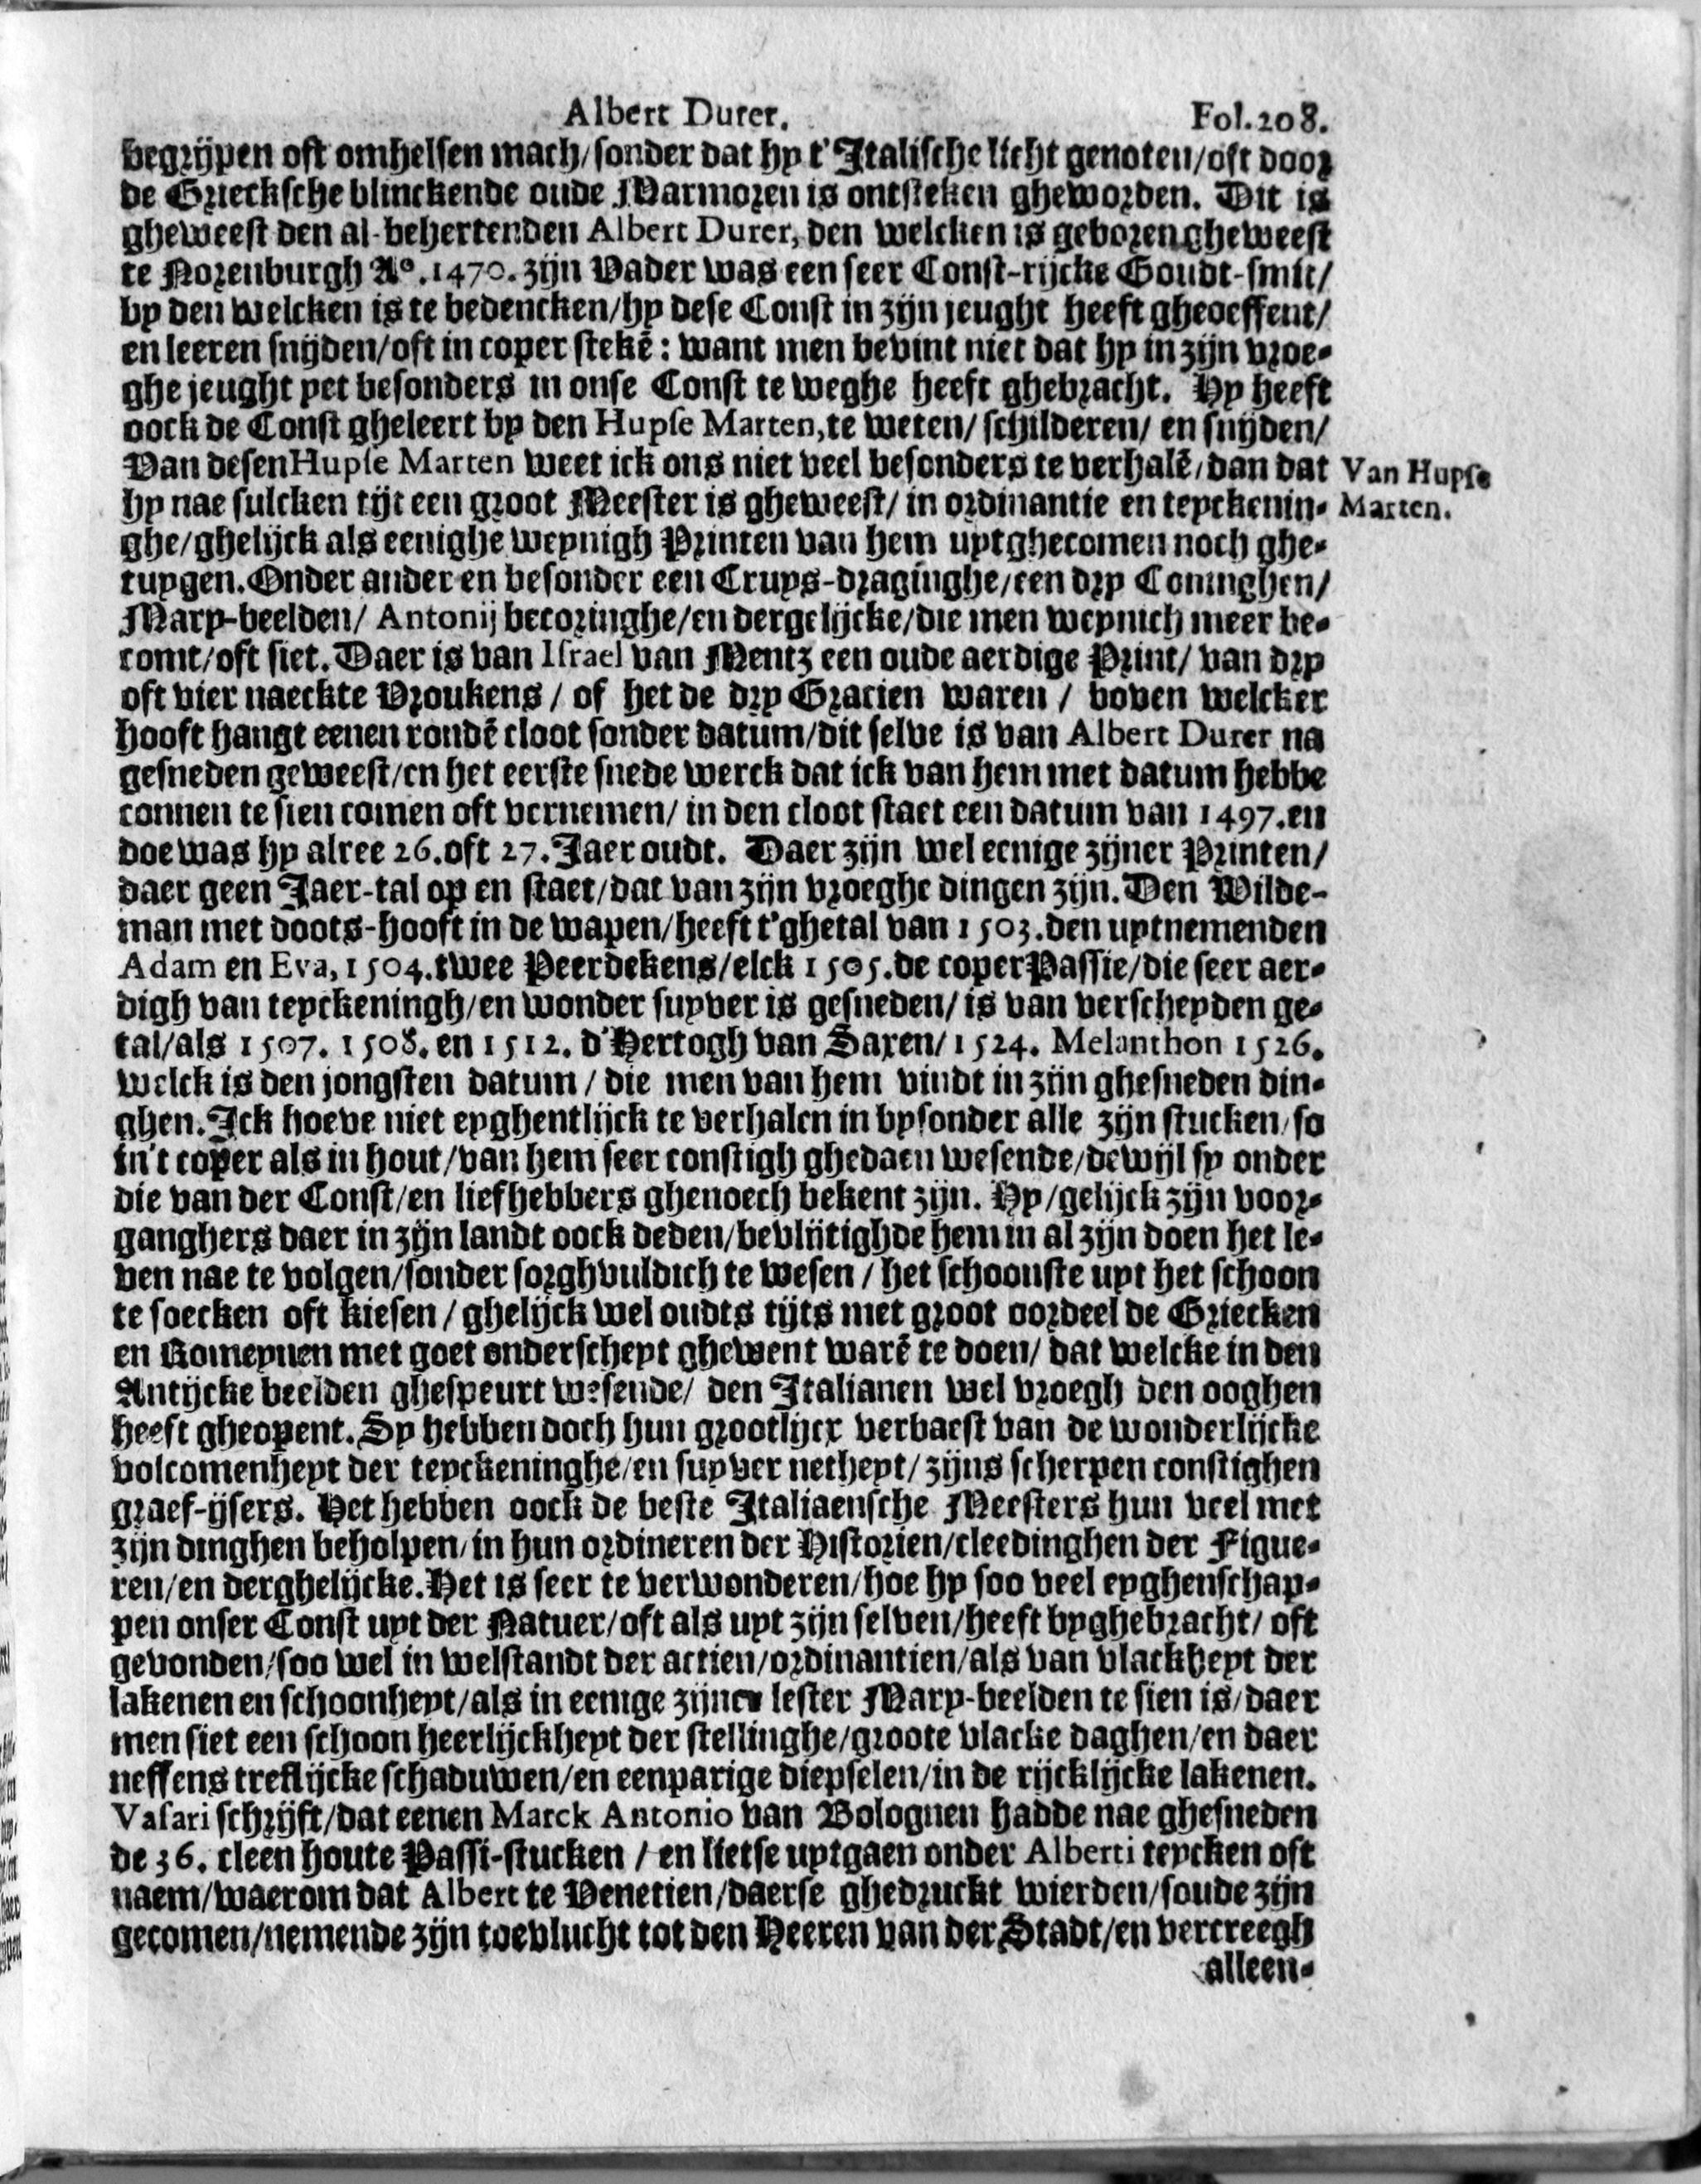 Albert Durer. Fol. 208.
begrijpen oft omhelsen mach/ sonder dat hy t'Italische licht genoten/ oft door
de Griecksche blinckende oude Marmoren is ontsteken gheworden. Dit is
gheweest den al-behertenden Albert Durer, den welcken is geboren gheweest
te Norenburgh Aº. 1470. zijn Vader was een seer Const-rijcke Goudt-smit/
by den welcken is te bedencken/ hy dese Const in zijn jeught heeft gheoeffent/
en leeren snijden/ oft in coper stekē: want men bevint niet dat hy in zijn vroe-
ghe jeught yet besonders in onse Const te weghe heeft ghebracht. Hy heeft
oock de Const gheleert by den Hupse Marten, te weten/ schilderen/ en snijden/
Van desen Hupse Marten weet ick ons niet veel besonders te verhalē/ dan dat
Van Hupse
hy nae sulcken tijt een groot Meester is gheweest/ in ordinantie en teyckenin-
Marten.
ghe/ ghelijck als eenighe weynigh Printen van hem uytghecomen noch ghe-
tuygen. Onder ander en besonder een Cruys-draginghe/ een dry Coninghen/
Mary-beelden/ Antonij becoringhe/ en dergelijcke/ die men weynich meer be-
comt/ oft siet. Daer is van Israel van Mentz een oude aerdige Print/ van dry
oft vier naeckte Vroukens / of het de dry Gratien waren / boven welcker
hooft hangt eenen rondē cloot sonder datum/ dit selve is van Albert Durer na
gesneden geweest/ en het eerste snede werck dat ick van hem met datum hebbe
connen te sien comen oft vernemen/ in den cloot staet een datum van 1497. en
doe was hy alree 26. oft 27. Jaer oudt. Daer zijn wel eenige zijner Printen/
daer geen Jaer-tal op en staet/ dat van zijn vroeghe dingen zijn. Den Wilde-
man met doots-hooft in de wapen/ heeft t'ghetal van 1503. den uytnemenden
Adam en Eva, 1504. twee Peerdekens/ elck 1505. de coper Passie/ die seer aer-
digh van teyckeningh/ en wonder suyver is gesneden/ is van verscheyden ge-
tal/ als 1507. 1508. en 1512. d'Hertogh van Saxen/ 1524. Melanthon 1526.
welck is den jongsten datum / die men van hem vindt in zijn ghesneden din-
ghen. Ick hoeve niet eyghentlijck te verhalen in bysonder alle zijn stucken/ so
in't coper als in hout/ van hem seer constigh ghedaen wesende/ dewijl sy onder
die van der Const/ en liefhebbers ghenoech bekent zijn. Hy/ gelijck zijn voor-
ganghers daer in zijn landt oock deden/ bevlijtighde hem in al zijn doen het le-
ven nae te volgen/ sonder sorghvuldich te wesen / het schoonste uyt het schoon
te soecken oft kiesen / ghelijck wel oudts tijts met groot oordeel de Griecken
en Romeynen met goet onderscheyt ghewent warē te doen/ dat welcke in den
Antijcke beelden ghespeurt wesende/ den Italianen wel vroegh den ooghen
heeft gheopent. Sy hebben doch hun grootlijcx verbaest van de wonderlijcke
volcomenheyt der teyckeninghe/ en suyver netheyt/ zijns scherpen constighen
graef-ijsers. Het hebben oock de beste Italiaensche Meesters hun veel met
zijn dinghen beholpen/ in hun ordineren der Historien/ cleedinghen der Figue-
ren/ en derghelijcke. Het is seer te verwonderen/ hoe hy soo veel eyghenschap-
pen onser Const uyt der Natuer/ oft als uyt zijn selven/ heeft byghebracht/ oft
gevonden/ soo wel in welstandt der actien/ ordinantien/ als van vlackheyt der
lakenen en schoonheyt/ als in eenige zijner lester Mary-beelden te sien is/ daer
men siet een schoon heerlijckheyt der stellinghe/ groote vlacke daghen/ en daer
neffens treflijcke schaduwen/ en eenparige diepselen/ in de rijcklijcke lakenen.
Vasari schrijft/ dat eenen Marck Antonio van Bolognen hadde nae ghesneden
de 36. cleen houte Passi-stucken / en lietse uytgaen onder Alberti teycken oft
naem/ waerom dat Albert te Venetien/ daerse ghedruckt wierden/ soude zijn
gecomen/ nemende zijn toevlucht tot den Heeren van der Stadt/ en vercreegh
alleen-